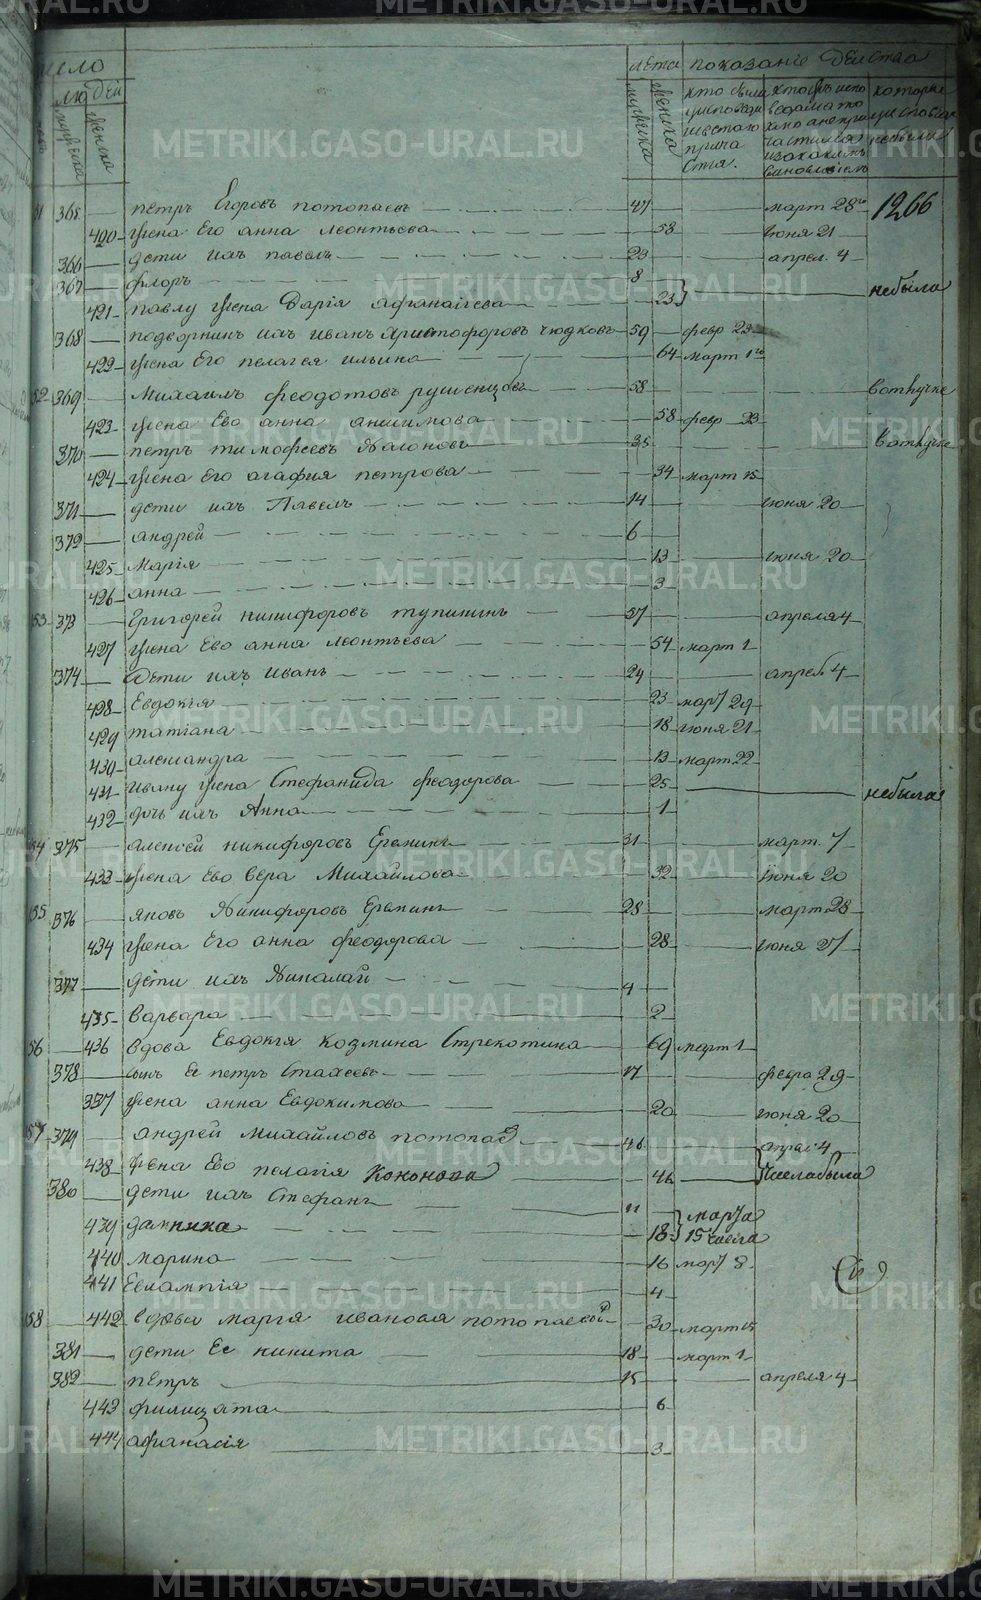 число
лета показанiе действа
людей
мужеска
женска
мужеска
женска
кто были
у исповеди
и святого
прича
стiя.
кои
не были
365 петръ Егоровъ потопаевъ 47 март 28го 1266
420 жена Его анна леонтьева 53 iюня 21
366 дети ихъ павелъ 23 апрел. 4
367 флоръ 8
421 павлу жена Дарiя афанасiева 23 небыла
368 подворникъ ихъ иванъ христофоровъ чюдковъ 59 февр 23
422 жена Его пелагея ильина 64 март 1го
52 369 Михаилъ феодотовъ 58 вотлучке
423 жена Ево анна анисимова 58 февр 23
370 петръ тимофеевъ 35 вотлучке
424 жена Его агафия петрова 34 март 15
371 дети ихъ Павелъ 14 iюня 20
372 андрей 6
425 Марiя 13 iюня 20
426 анна 3
53 373 Григорей никифоровъ тупикинъ 57 апреля 4
427 жена Ево анна леонтьева 54 март 1
374 Дети ихъ иванъ 24 апрел 4
428 Евдокiя 23 март 29
429 татiана 18 iюня 21
430 александра 13 март 22
431 ивану жена Стефанида феодорова 25 небыла
432 дочь ихъ Анна 1
54 375 алексей никифоровъ Еремин 31 март 7
433 жена Ево вера Михайлова 32 iюня 20
155 376 яковъ Никифоровъ Еремин 28 март 28
434 жена Его анна феодорова 28 iюня 27
377 дети ихъ Николай 4
435 варвара 2
56 436 вдова Евдокiя козмина Стрекотина 69 март 1
378 сынъ Ее петръ Стахеевъ 17 февра 29
337 жена анна Евдокимова 20 iюня 20
57 379 андрей михайловъ потопаев 46 апрел 4
438 жена Ево пелагiя Кононова 46 была
380 дети ихъ Стефанъ 11
439 домника 18 марта 15 числа
440 марина 16 март 8
441 Евлампiя 4
58 442 вдова марiя иванова потопаева 30 март 15
381 дети Ее никита 18 март 1
382 петръ 15 апреля 4
443 филицата 6
444 афанасiя 3
METRIKI.GASO-URAL.RU